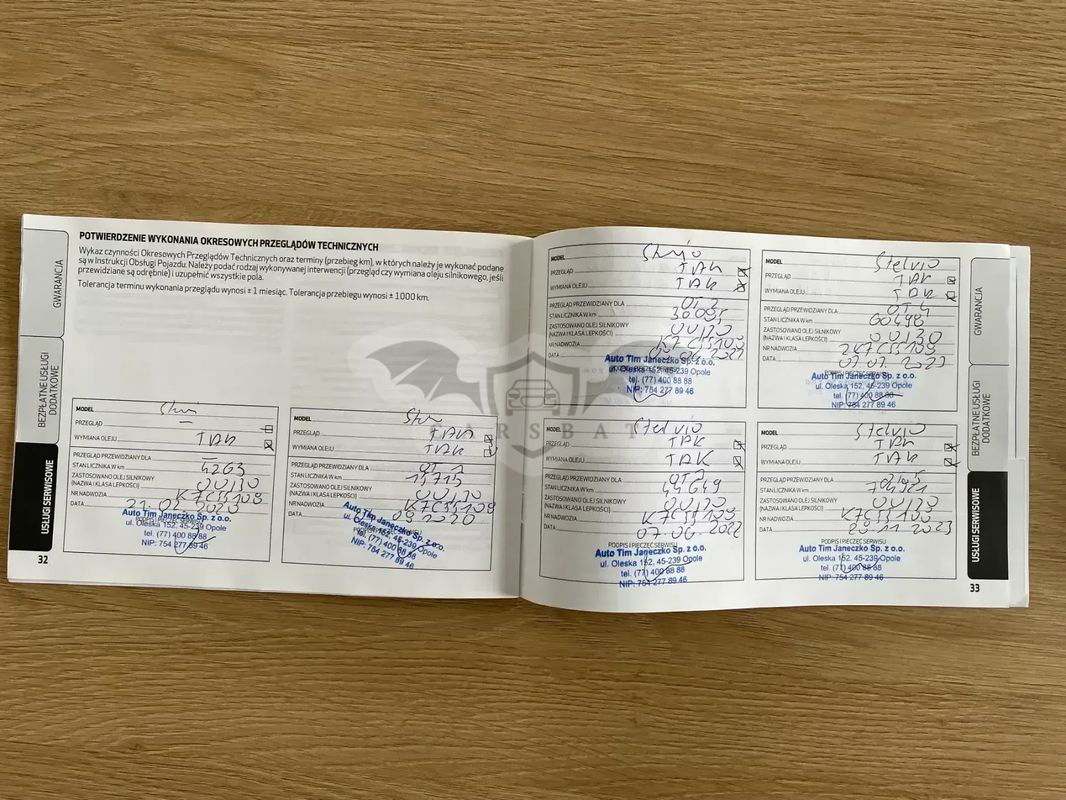 POTWIERDZENIE WYKONANIA OKRESOWYCH PRZEGLĄDÓW TECHNICZNYCH
Wykaz czynności Okresowych Przeglądów Technicznych oraz terminy (przebieg km), w których należy je wykonać podane
są w Instrukcji Obsługi Pojazdu. Należy podać rodzaj wykonywanej interwencji (przegląd czy wymiana oleju silnikowego, jeśli
przewidziane są odrębnie) i uzupełnić wszystkie pola.
Tolerancja terminu wykonania przeglądu wynosi ± 1 miesiąc. Tolerancja przebiegu wynosi ± 1000 km.
GWARANCJA
BEZPŁATNE USŁUGI
DODATKOWE
USŁUGI SERWISOWE
MODEL
PRZEGLĄD –
WYMIANA OLEJU TAK
PRZEGLĄD PRZEWIDZIANY DLA –
STAN LICZNIKA W km 4263
ZASTOSOWANO OLEJ SILNIKOWY
(NAZWA I KLASA LEPKOŚCI) 0W30
NR NADWOZIA K7C55109
DATA
Auto Tim Janeczko Sp. z o.o.
ul. Oleska 152, 45-239 Opole
tel. (77) 400 88 88
NIP: 754 277 89 46
32
MODEL
PRZEGLĄD TAK
WYMIANA OLEJU TAK
PRZEGLĄD PRZEWIDZIANY DLA OT 1
STAN LICZNIKA W km 15715
ZASTOSOWANO OLEJ SILNIKOWY
(NAZWA I KLASA LEPKOŚCI) 0W30
NR NADWOZIA K7C55109
DATA
Auto Tim Janeczko Sp. z o.o.
ul. Oleska 152, 45-239 Opole
tel. (77) 400 88 88
NIP: 754 277 89 46
MODEL
PRZEGLĄD TAK
WYMIANA OLEJU TAK
PRZEGLĄD PRZEWIDZIANY DLA OT 2
STAN LICZNIKA W km
ZASTOSOWANO OLEJ SILNIKOWY
(NAZWA I KLASA LEPKOŚCI) 0W30
NR NADWOZIA K7C55109
DATA
Auto Tim Janeczko Sp. z o.o.
ul. Oleska 152, 45-239 Opole
tel. (77) 400 88 88
NIP: 754 277 89 46
MODEL Stelvio
PRZEGLĄD TAK
WYMIANA OLEJU TAK
PRZEGLĄD PRZEWIDZIANY DLA OT 4
STAN LICZNIKA W km 60498
ZASTOSOWANO OLEJ SILNIKOWY
(NAZWA I KLASA LEPKOŚCI) 0W30
NR NADWOZIA K7C55109
DATA
Auto Tim Janeczko Sp. z o.o.
ul. Oleska 152, 45-239 Opole
tel. (77) 400 88 88
NIP: 754 277 89 46
CARSBAT
MODEL Stelvio
PRZEGLĄD TAK
WYMIANA OLEJU TAK
PRZEGLĄD PRZEWIDZIANY DLA OT 3
STAN LICZNIKA W km 44649
ZASTOSOWANO OLEJ SILNIKOWY
(NAZWA I KLASA LEPKOŚCI) 0W30
NR NADWOZIA K7C55109
DATA 07.06.2022
PODPIS I PIECZĘĆ SERWISU
Auto Tim Janeczko Sp. z o.o.
ul. Oleska 152, 45-239 Opole
tel. (77) 400 88 88
NIP: 754 277 89 46
MODEL Stelvio
PRZEGLĄD TAK
WYMIANA OLEJU TAK
PRZEGLĄD PRZEWIDZIANY DLA
STAN LICZNIKA W km
ZASTOSOWANO OLEJ SILNIKOWY
(NAZWA I KLASA LEPKOŚCI) 0W30
NR NADWOZIA K7C55109
DATA
PODPIS I PIECZĘĆ SERWISU
Auto Tim Janeczko Sp. z o.o.
ul. Oleska 152, 45-239 Opole
tel. (77) 400 88 88
NIP: 754 277 89 46
GWARANCJA
BEZPŁATNE USŁUGI
DODATKOWE
USŁUGI SERWISOWE
33